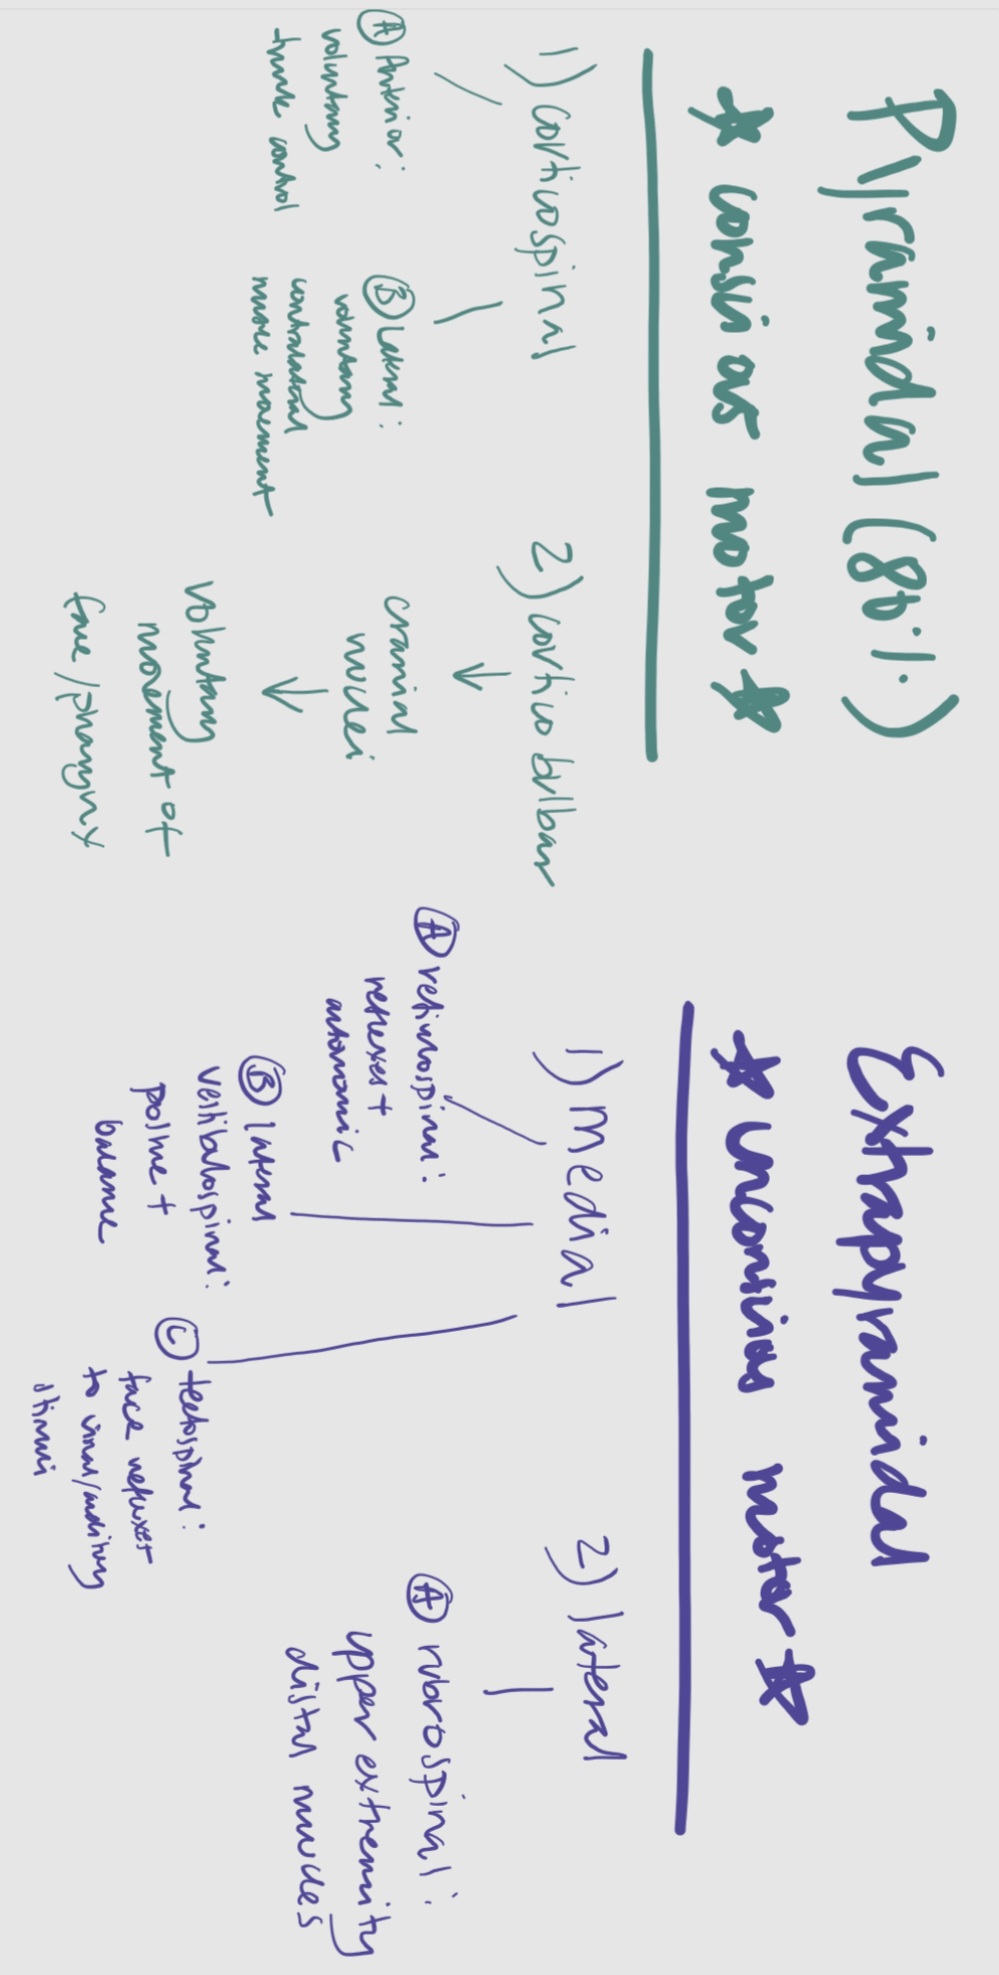 Pyramidal (80%)
★ consious motor ★
1) corticospinal
Ⓐ Anterior:
voluntary
trunk control
Ⓑ Lateral:
voluntary
contralateral
muscle movement
2) corticobulbar
↓
cranial
nuclei
↓
voluntary
movement of
face/pharynx
Extrapyramidal
★ unconsious motor ★
1) medial
Ⓐ reticulospinal:
reflexes +
autonomic
Ⓑ lateral
vestibulospinal:
posture +
balance
Ⓒ tectospinal:
face reflexes
to visual/auditory
stimuli
2) lateral
Ⓐ rubrospinal:
upper extremity
distal muscles